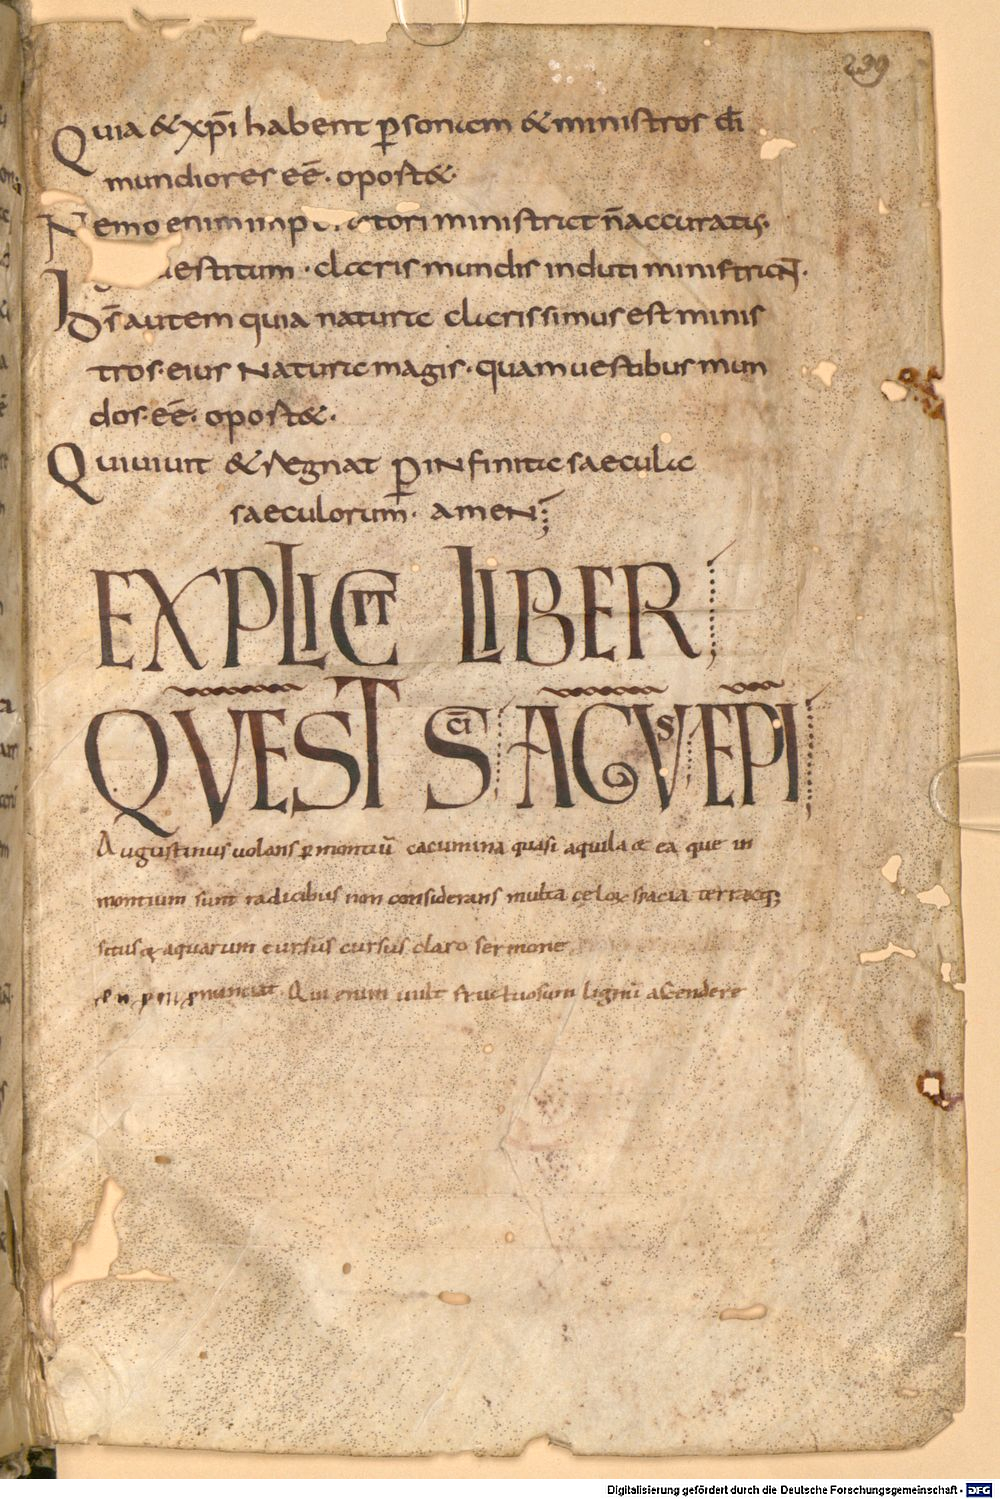 299
Quia & xp̄i habent p̱sonam & ministros d̄i
mundiores eē· oport&·
Nemo enim imp tori ministrat n̄ accuratis·
uestitum · claris mundis induti ministrant·
d̄s autem quia natura clarissimus est minis
tros· eius Natura magis· quam uestibus mun
dos· eē· oport&·
Qui uiuit & regnat p̱ INfinita saecula
saeculorum· ameN;
EXPLICIT LIBER
QVEST SC̄I AḠVS EPI
Augustinus uolans p̱ montiū cacumina quasi aquila & ea que in
montium sunt radicibus non considerans multa cęlorum spacia terrarūq;
situs & aquarum cursus cursus claro sermone
p̱nunciat· Qui enim uult fructuosum lignū ascendere
Digitalisierung gefördert durch die Deutsche Forschungsgemeinschaft - DFG